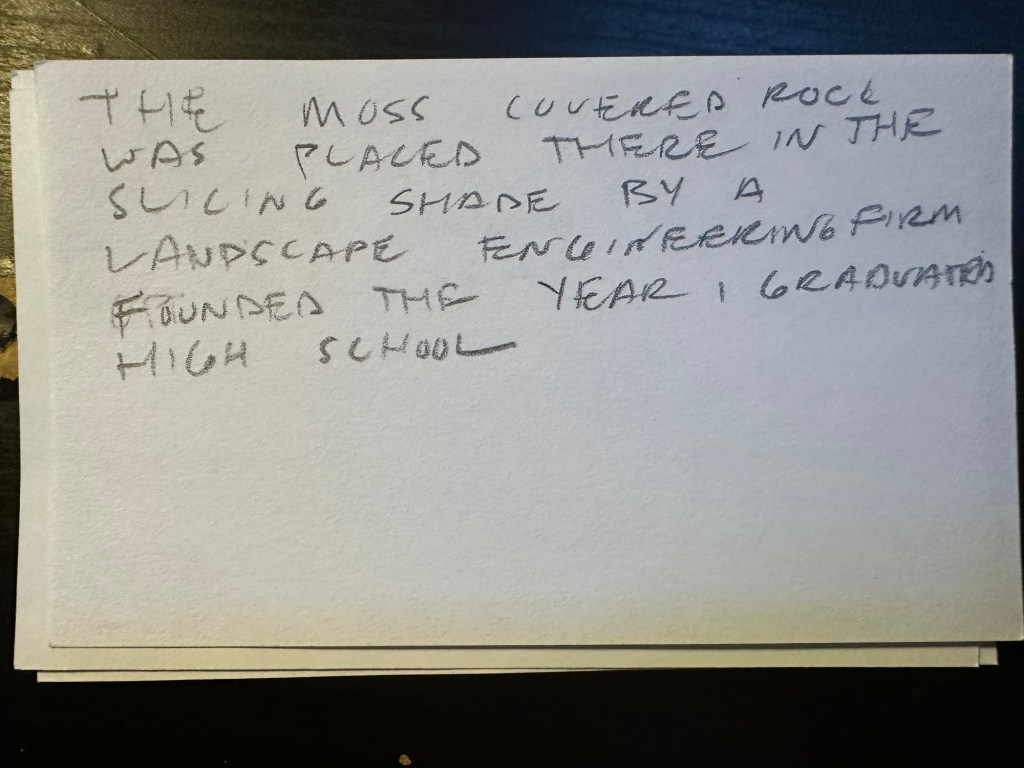 THE MOSS COVERED ROCK
WAS PLACED THERE IN THE
SLICING SHADE BY A
LANDSCAPE ENGINEERING FIRM
FOUNDED THE YEAR I GRADUATED
HIGH SCHOOL